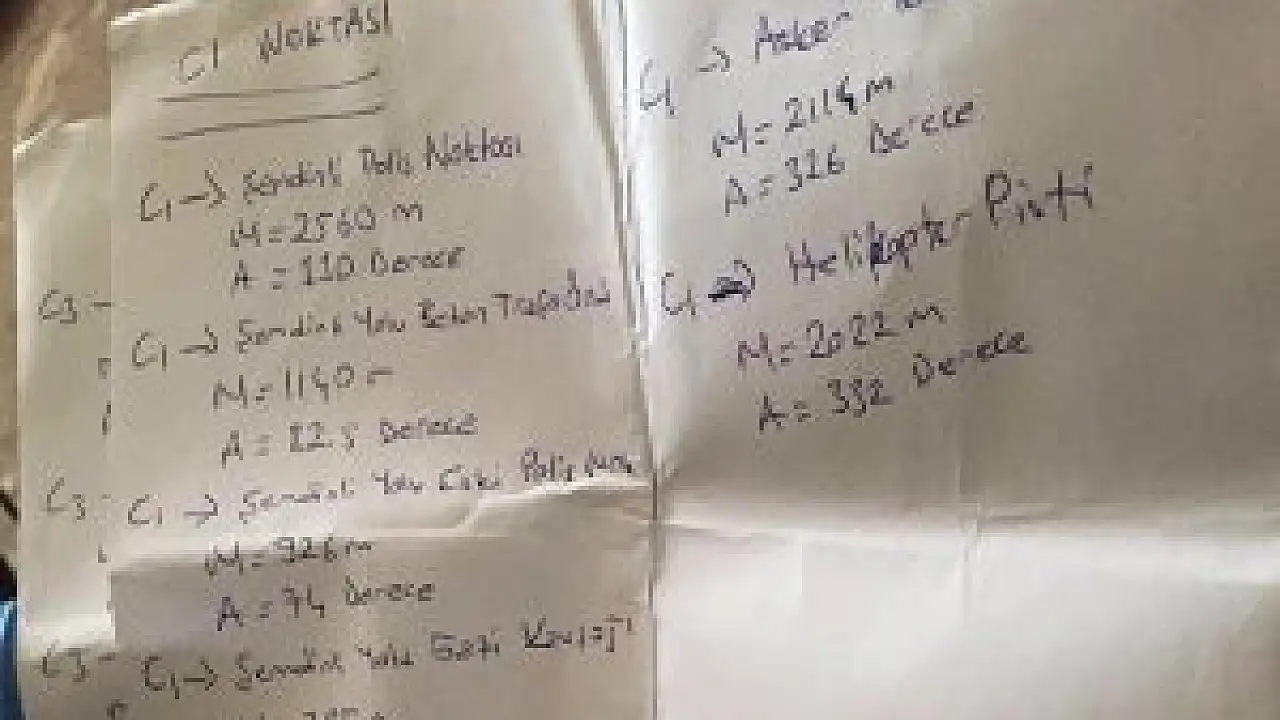 C1 NOKTASI
C1 → Şemdinli Polis Noktası
M = 2560 m
A = 110 Derece
C1 → Şemdinli Yolu Trafosu
M = 1140 m
A = 22.5 Derece
C1 → Şemdinli Yolu Eski Polis Nok
M = 926 m
A = 74 Derece
C1 → Şemdinli Yolu Gazi Kavşağı
C3 -
C3 -
C3 -
C1 → Asker
M = 2114 m
A = 326 Derece
C1 → Helikopter Pisti
M = 2022 m
A = 332 Derece